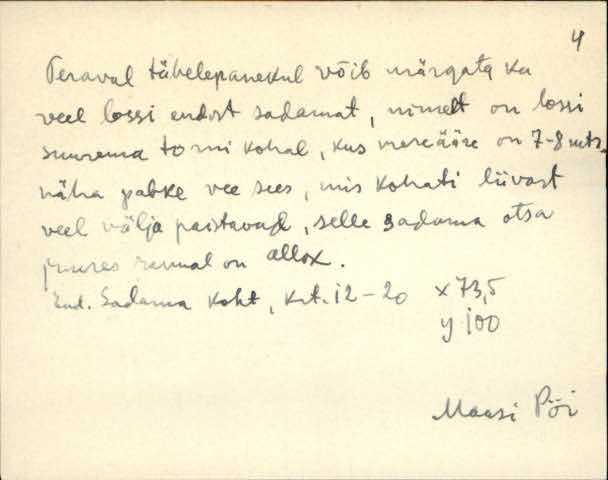 4
Teraval tähelepanekul võib märgata ka
veel lossi endist sadamat, nimelt on lossi
suurema torni kohal, kus mereääre on 7-8 mtr.
näha palke vee sees, mis kohati liivast
veel välja paistavad, selle sadama otsa
juures rannal on allox.
End. Sadama koht, krt. 12-20 x 73,5
y 100
Maasi Pöi